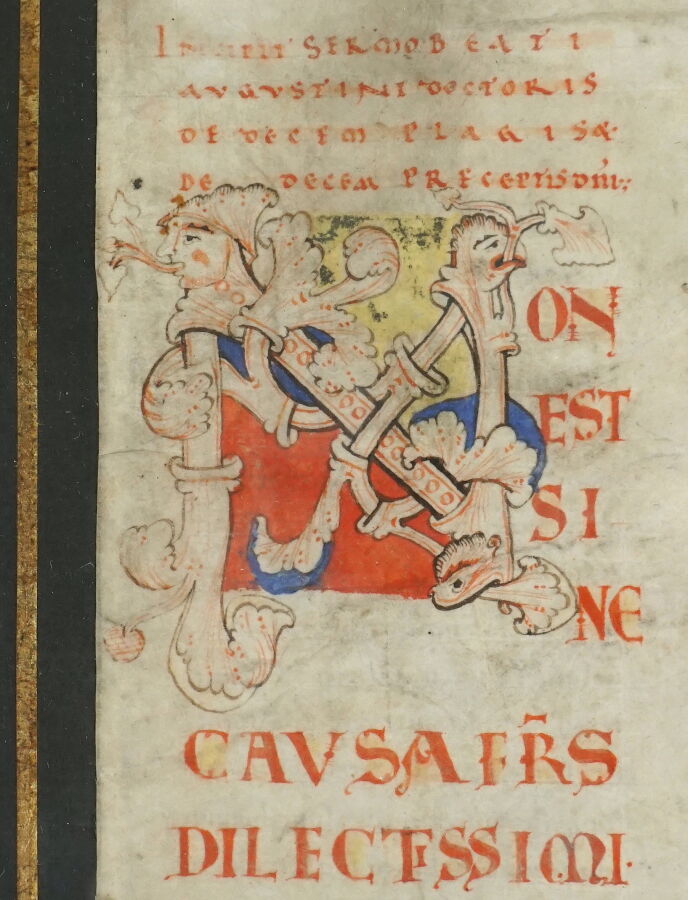 INCIPIT SERMO BEATI
AVGVSTINI DOCTORIS
DE DECEM PLAGIS &
DE DECEM PRECEPTIS DN̄I:
NON
EST
SI
NE
CAVSA FR̄S
DILECTISSIMI.